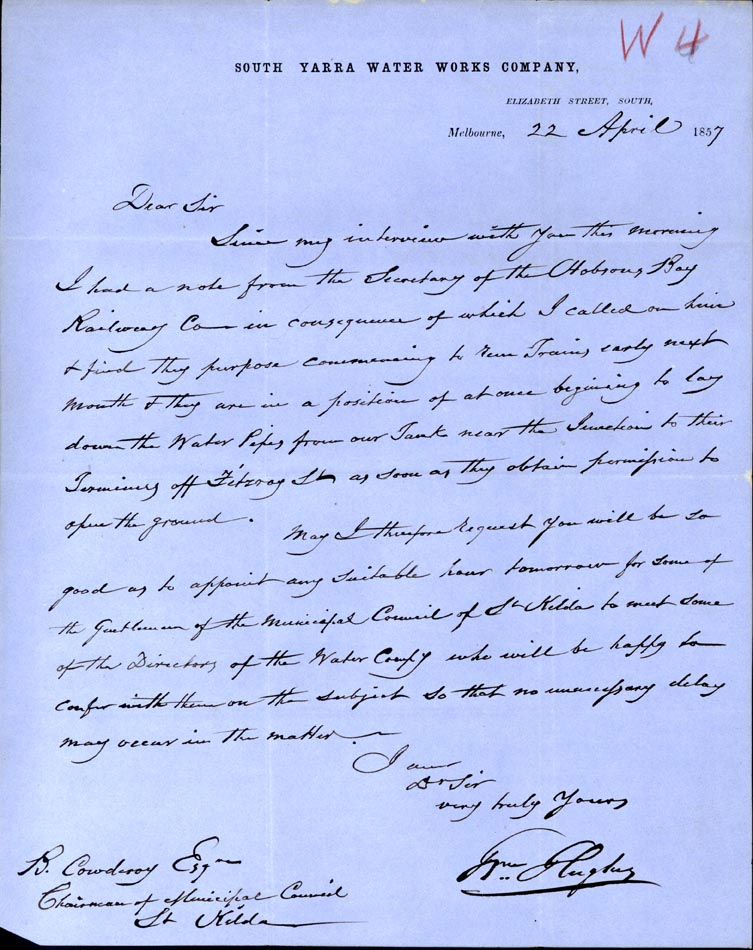 W 4
SOUTH YARRA WATER WORKS COMPANY,
ELIZABETH STREET, SOUTH,
Melbourne, 22 April 1857
Dear Sir
Since my interview with you this morning
I had a note from the Secretary of the Hobsons Bay
Railway Co in consequence of which I called on him
& find they purpose commencing to run Trains early next
month & they are in a position of at once begining to lay
down the Water Pipes from our Tank near the Junction to their
Terminus off Fitzroy St as soon as they obtain permission to
open the ground.
May I therefore request you will be so
good as to appoint any suitable hour tomorrow for some of
the Gentlemen of the Municipal Council of St Kilda to meet some
of the Directors of the Water Compy who will be happy to
confer with them on the subject so that no unnecessary delay
may occur in the matter.
I am
Dr Sir
very truly Yours
Wm Hughes
B. Cowderoy Esqre
Chairman of Municipal Council
St Kilda